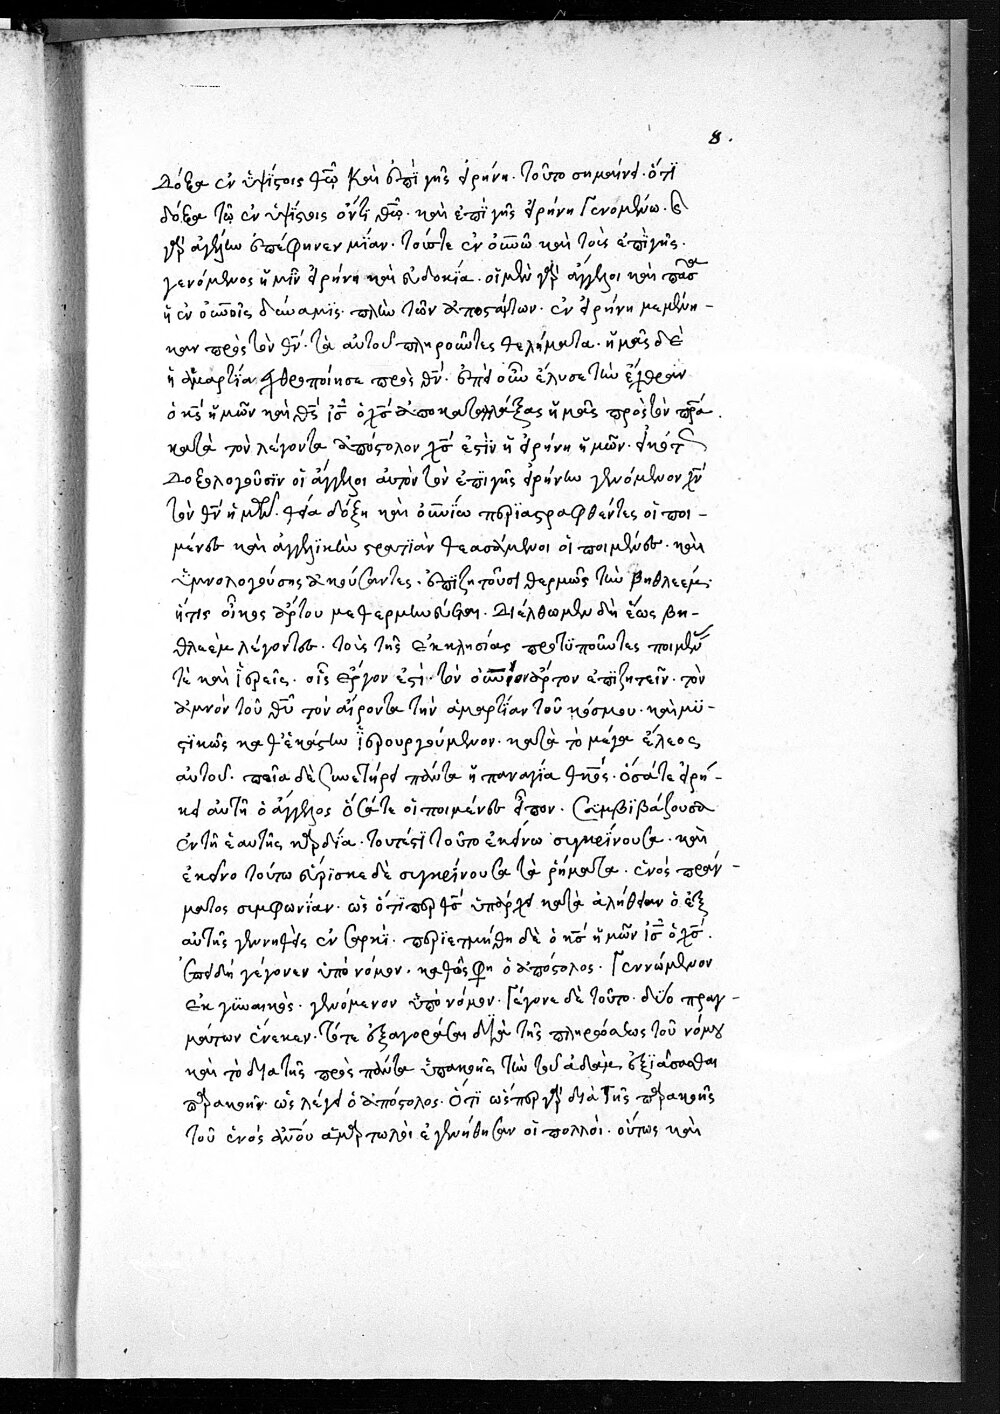 8.
Δόξα ἐν ὑψίστοις θῶ καὶ ἐπὶ γῆς εἰρήνη. τοῦτο σημαίνει. ὅτι
δόξα τῶ ἐν ὑψίστοις ὄντι θῶ. καὶ ἐπὶ γῆς εἰρήνη γενομένω.
γὰρ ἀγέλην ἀπέφηνεν μίαν. τοῖς τε ἐν οὐνῶ καὶ τοῖς ἐπὶ γῆς.
γενόμενος ἡμῖν εἰρήνη καὶ εὐδοκία. οἱ μὲν γὰρ ἄγγελοι καὶ πᾶσα
ἡ ἐν οὐνοῖς δύναμις. πλὴν τῶν ἀποστάτων. ἐν εἰρήνη μεμένη-
καν πρὸς τὸν θν. τὰ αὐτοῦ πληροῦντες θελήματα. ἡμᾶς δὲ
ἡ ἁμαρτία ἐχθροποίησε πρὸς θν. ἐπεὶ οὖν ἔλυσε τὴν ἔχθραν
ὁ κς ἡμῶν καὶ θς ις ὁ χς ἀποκαταλλάξας ἡμᾶς πρὸς τὸν πρα.
κατὰ τὸν λέγοντα ἀπόστολον χς ἐστὶν ἡ εἰρήνη ἡμῶν. εἰκότως
Δοξολογοῦσιν οἱ ἄγγελοι αὐτὸν τὸν ἐπὶ γῆς εἰρήνην γενόμενον χν
τὸν θν ἡμῶν. θεία δόξη καὶ οὐνίω περιαστραφθέντες οἱ ποι-
μένες καὶ ἀγγελικὴν στρατιὰν θεασάμενοι οἱ ποιμένες. καὶ
ὑμνολογούσης ἀκούσαντες. ἐπιζητοῦσι θερμῶς τὴν βηθλεέμ.
ἥτις οἶκος ἄρτου μεθερμηνεύεται. Διέλθωμεν δὴ ἕως βη-
θλεὲμ λέγοντες. τοὺς τῆς ἐκκλησίας προτυποῦντες ποιμένας
τὲ καὶ ἱερεῖς. οἷς ἔργον ἐστὶ. τὸν οὐνιον ἄρτον ἐπιζητεῖν. τὸν
ἀμνὸν τοῦ θυ τὸν αἴροντα τὴν ἁμαρτίαν τοῦ κόσμου. καὶ μυ-
στικῶς καθεκάστην ἱερουργούμενον. κατὰ τὸ μέγα ἔλεος
αὐτοῦ. ποῖα δὲ συνετήρει πάντα ἡ παναγία θκος. ὅσά τε εἰρή-
κει αὐτῆ ὁ ἄγγελος ὅσά τε οἱ ποιμένες εἶπον. συμβιβάζουσα
ἐν τῆ ἑαυτῆς καρδία. τουτέστι τοῦτο ἐκείνω συγκρίνουσα. καὶ
ἐκεῖνο τούτω εὕρισκε δὲ συγκρίνουσα τὰ ῥήματα. ἑνὸς πράγ-
ματος συμφωνίαν. ὡς ὅτι περ θς ὑπάρχει κατὰ ἀλήθειαν ὁ ἐξ
αὐτῆς γεννηθεὶς ἐν σαρκὶ. περιετμήθη δὲ ὁ κς ἡμῶν ις ὁ χς.
ἐπειδὴ γέγονεν ὑπὸ νόμον. καθώς φη ὁ ἀπόστολος. Γεννώμενον
ἐκ γυναικὸς. γενόμενον ὑπὸ νόμον. Γέγονε δὲ τοῦτο. δύο πραγ-
μάτων ἕνεκεν. τότε ἐξαγοράσαι διὰ τῆς πληρώσεως τοῦ νόμου
καὶ τὸ δια τῆς πρὸς πάντα ὑπακοῆς τὴν τοῦ ἀδὰμ ἐξιάσασθαι
παρακοήν. ὡς λέγει ὁ ἀπόστολος. Ὅτι ὥσπερ γὰρ διὰ τῆς παρακοῆς
τοῦ ἑνός ἀνου ἁμαρτωλὸι ἐγεννήθησαν οἱ πολλόι. οὕτως καὶ